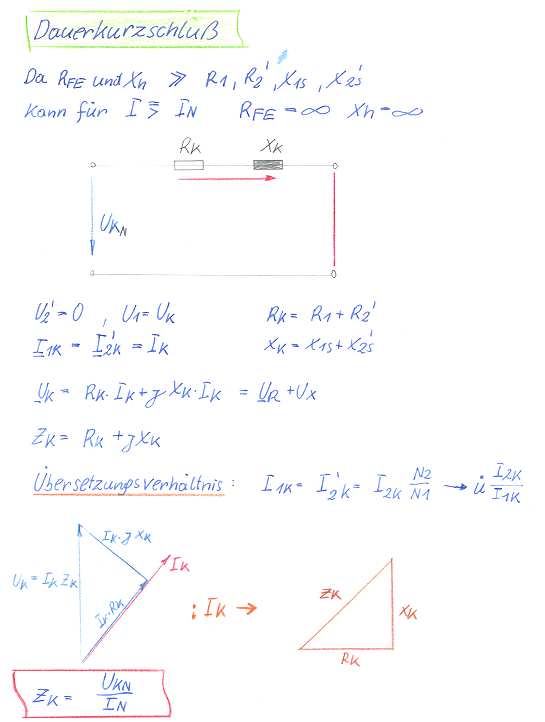 Dauerkurzschluß
Da RFE und Xh >> R1, R2', X1s, X2s'
Kann für I ≧ IN RFE = ∞ Xh = ∞
RK XK
UKN
U2' = 0 , U1 = UK RK = R1 + R2'
I1K = I2K' = IK XK = X1s + X2s'
UK = RK · IK + j XK · IK = UR + UX
ZK = RK + j XK
Übersetzungsverhältnis : I1K = I2K' = I2K N2/N1 → ü I2K/I1K
IK · j XK
UK = IK ZK
IK · RK
IK
: IK →
ZK
XK
RK
ZK = UKN/IN